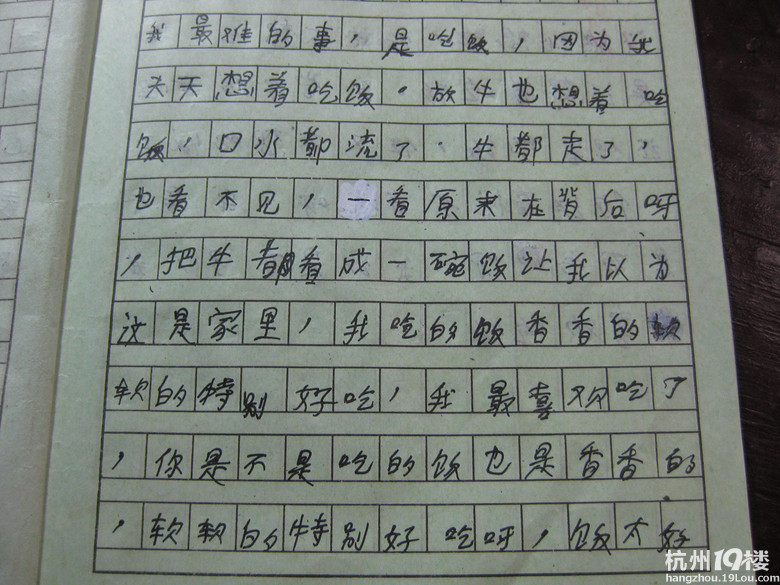 我最难的事，是吃饭，因为我
天天想着吃饭。放牛也想着吃
饭，口水都流了。牛都走了，
也看不见，一看原来在背后呀
，把牛都看成一碗饭让我以为
这是家里，我吃的饭香香的软
软的特别好吃，我最喜欢吃了
，你是不是吃的饭也是香香的
，软软的特别好吃呀，饭太好
杭州19楼
hangzhou.19Lou.com